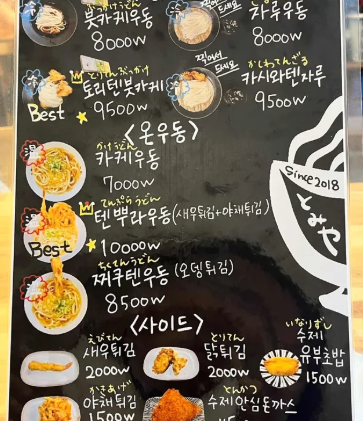 ぶっかけうどん
붓카케우동
8000w
자루우동
8000w
찍어서
드세요
とりてんぶっかけ
토리텐붓카케
9500w
Best
찍어서
드세요
かしわてんざる
카시와텐자루
9500w
<온우동>
温
かけうどん
카케우동
7000w
Since 2018
とみや
温
てんぷらうどん
텐뿌라우동(새우튀김+야채튀김)
Best
10000w
温
ちくてんうどん
찌쿠텐우동 (오뎅튀김)
8500w
<사이드>
えびてん
새우튀김
2000w
とりてん
닭튀김
2000w
いなりずし
수제
유부초밥
1500w
かきあげ
야채튀김
1500w
とんかつ
수제안심돈까스